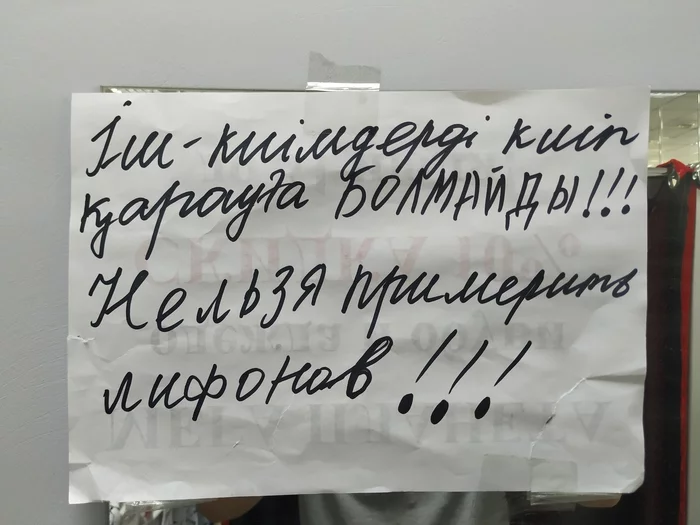 Іш-киімдерді киіп
қарауға БОЛМАЙДЫ!!!
Нельзя примерить
лифонов!!!